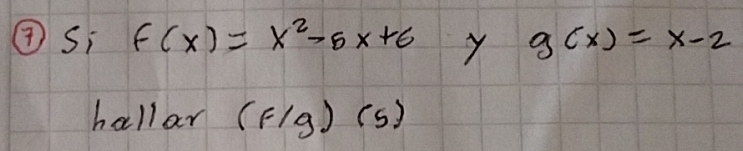 ⑦ Si F(x) = x²-5x+6 y g(x) = x-2
hallar (F/g) (5)